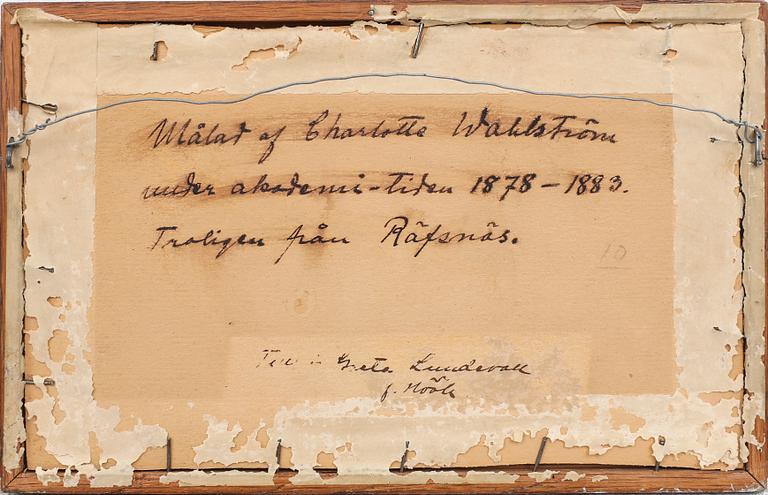 Målad af Charlotte Wahlström
under akademi-tiden 1878-1883.
Troligen från Räfsnäs.
10
Greta Lundevall
f. Höök